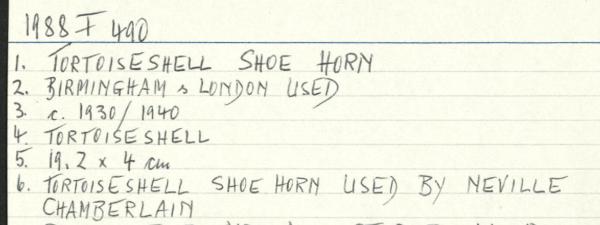 1988 F 490
1. TORTOISESHELL SHOE HORN
2. BIRMINGHAM & LONDON USED
3. c. 1930/1940
4. TORTOISESHELL
5. 19.2 x 4 cm
6. TORTOISESHELL SHOE HORN USED BY NEVILLE
CHAMBERLAIN